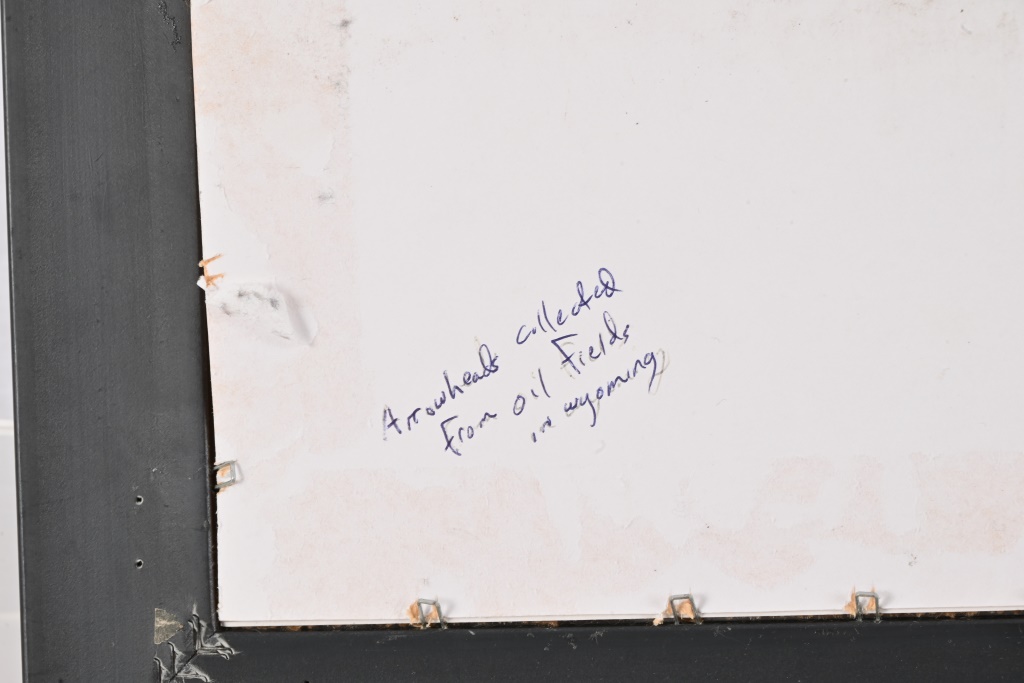 Arrowheads collected
From oil Fields
in wyoming